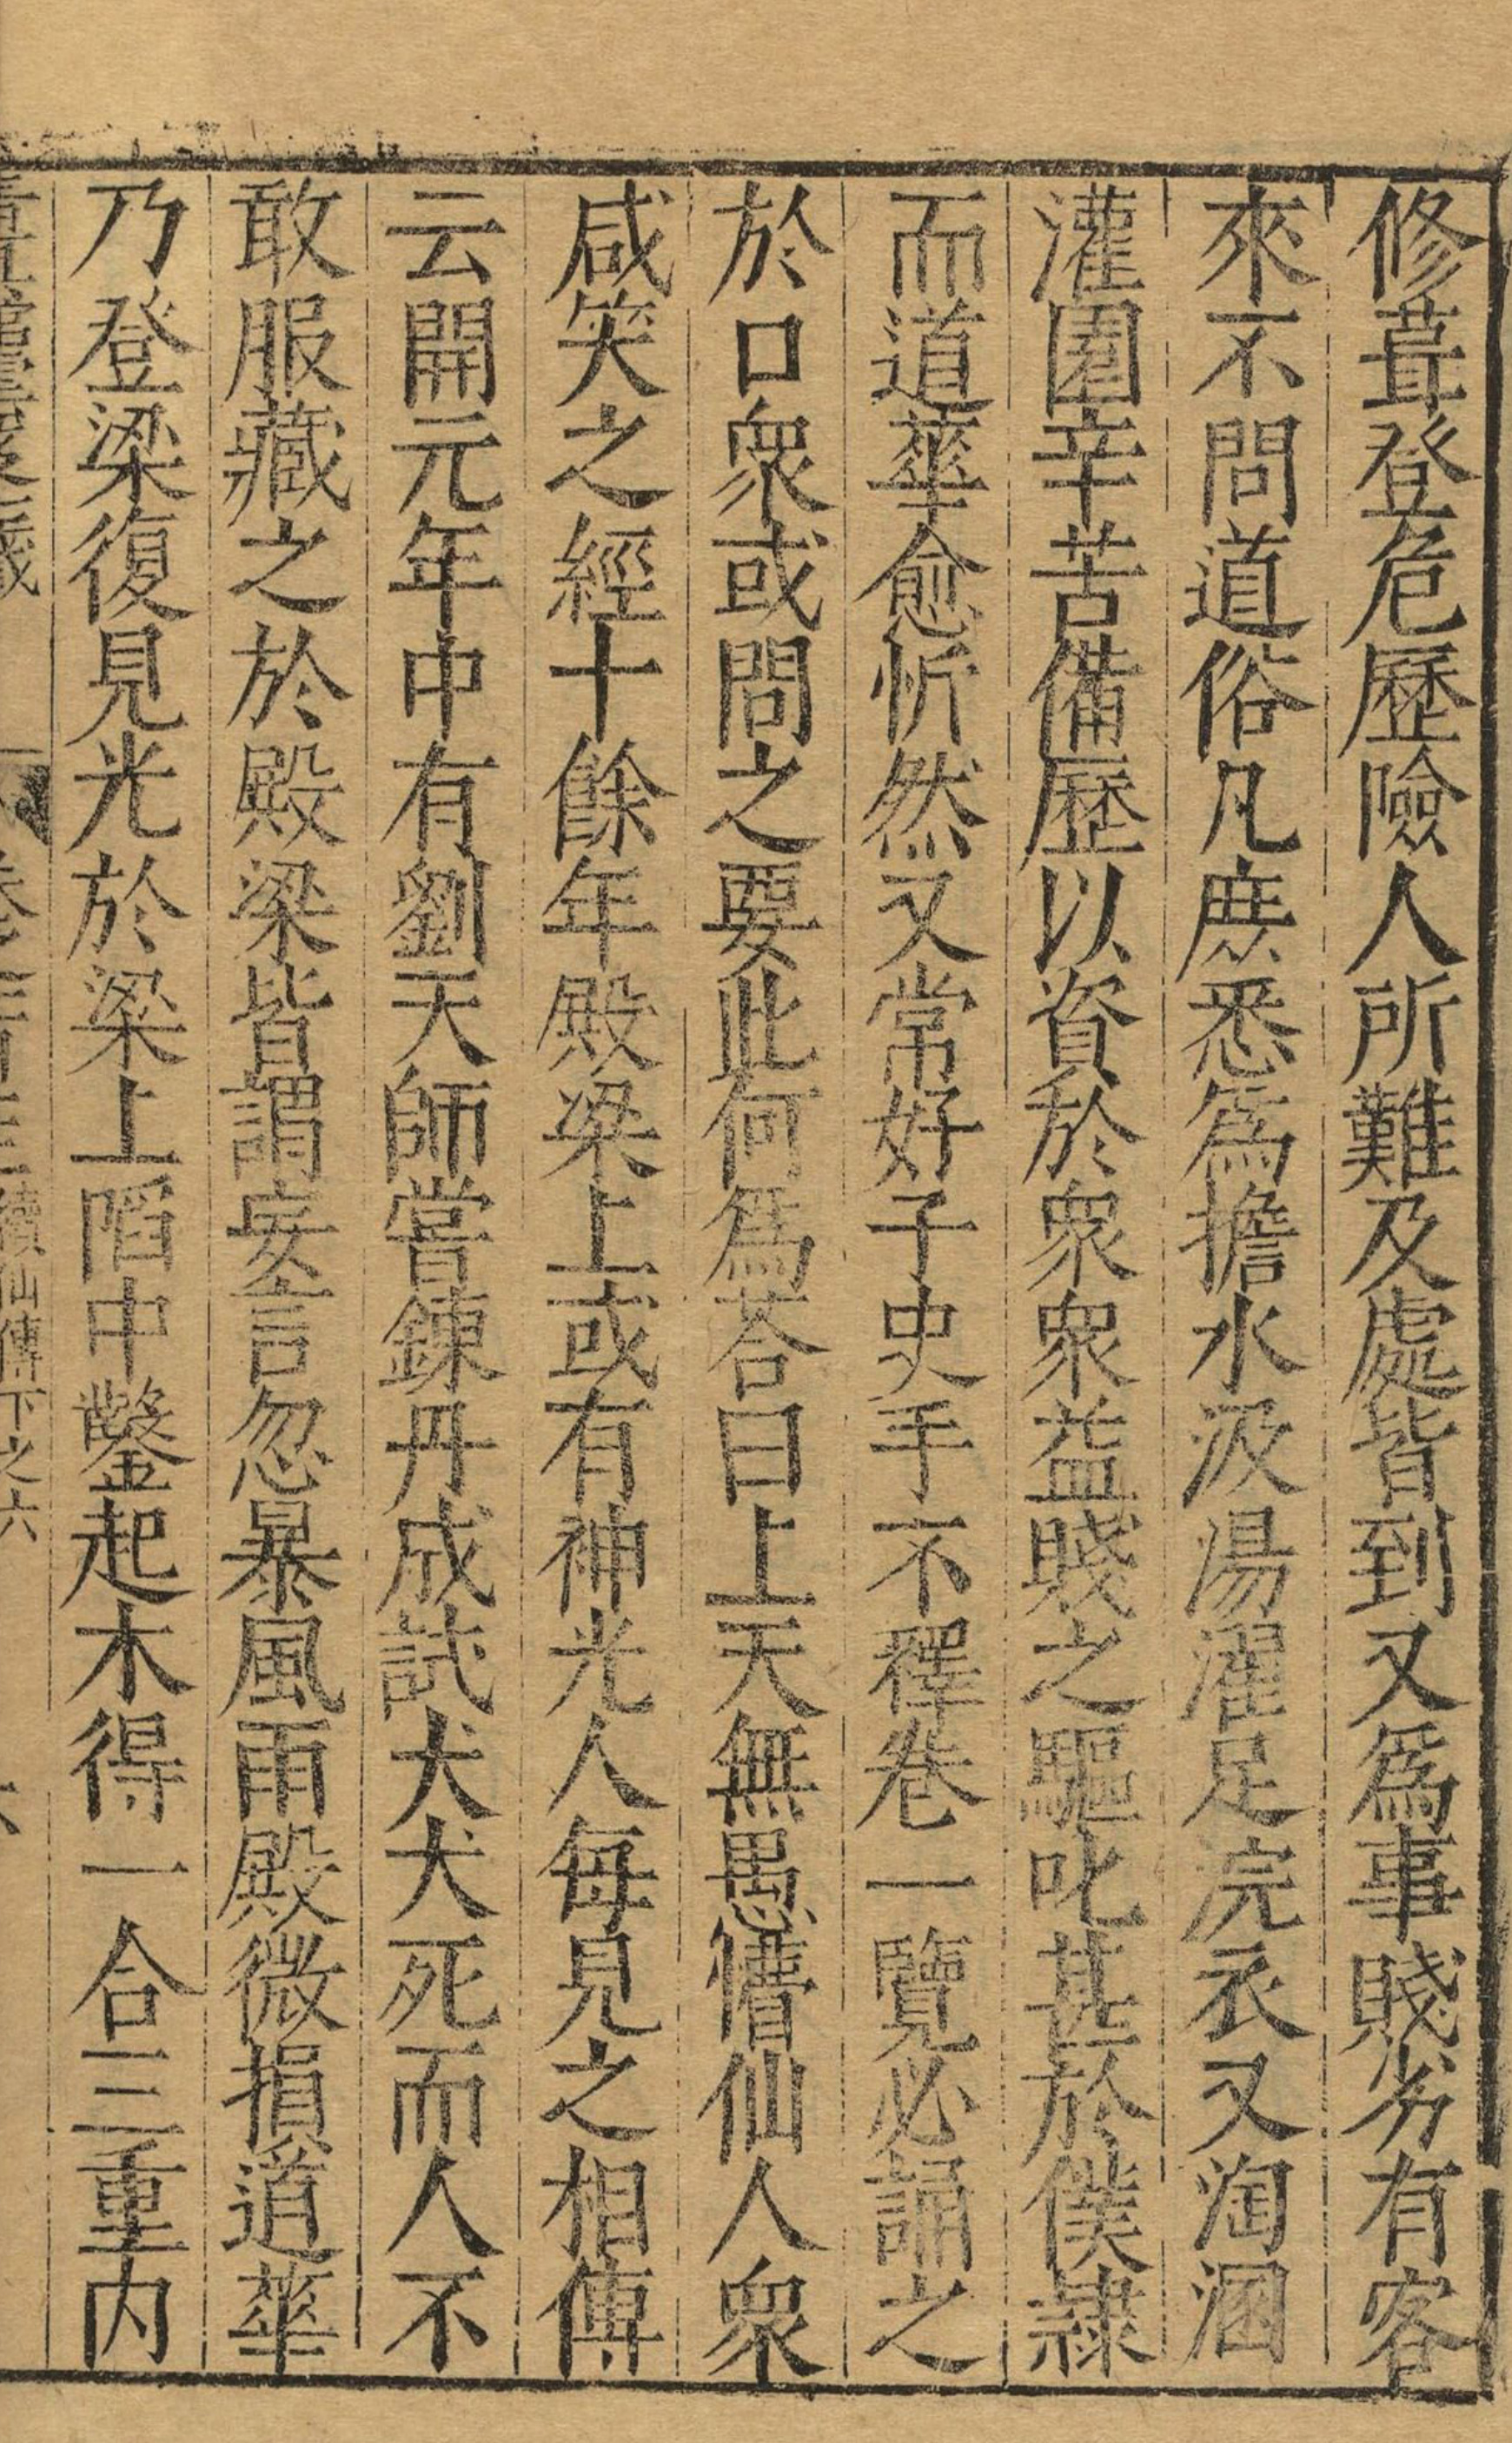 修葺登危歷險人所難及處皆到又爲事賤劣有客
來不問道俗凡庶悉爲擔水汲湯濯足浣衣又淘溷
灌園辛苦備歷以資於衆衆益賤之驅叱甚於僕隸
而道華愈忻然又常好子史手不釋卷一覽必誦之
於口衆或問之要此何爲荅曰上天無愚懵仙人衆
咸笑之經十餘年殿梁上或有神光人每見之相傳
云開元年中有劉天師嘗鍊丹成試犬犬死而人不
敢服藏之於殿梁皆謂妄言忽暴風雨殿微損道華
乃登梁復見光於梁上陷中鑿起木得一合三重内
續仙傳下之六